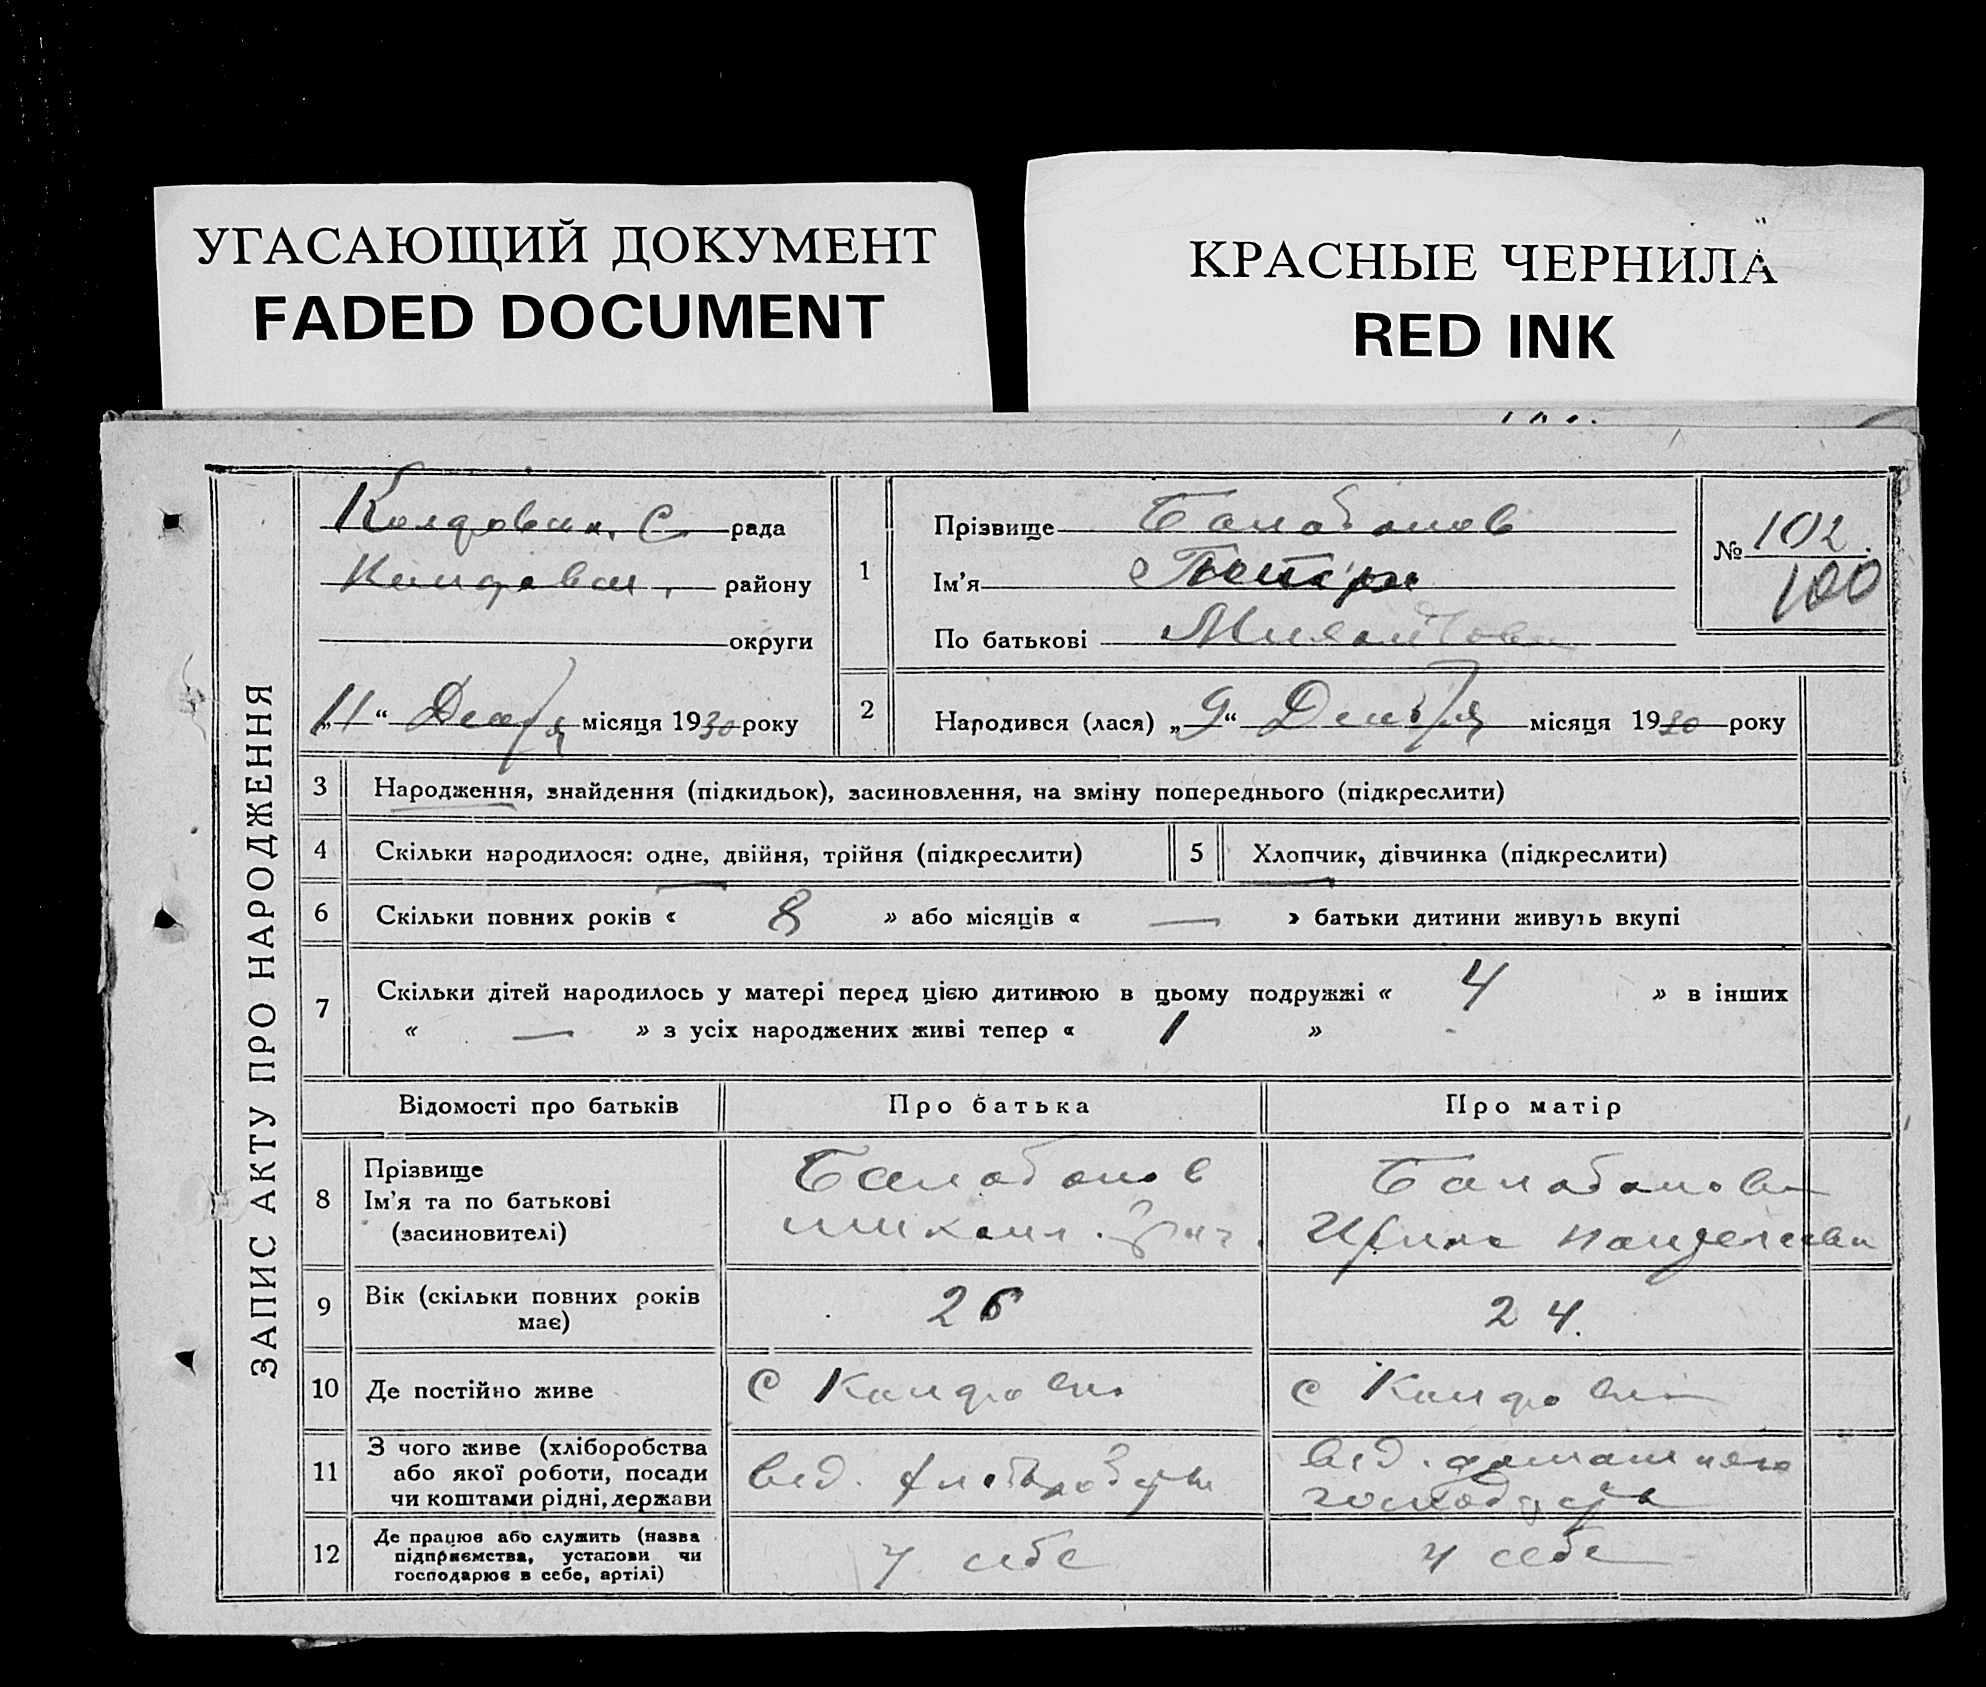 УГАСАЮЩИЙ ДОКУМЕНТ
FADED DOCUMENT
КРАСНЫЕ ЧЕРНИЛА
RED INK
ЗАПИС АКТУ ПРО НАРОДЖЕННЯ
С рада
району
округи
„11“ місяця 1930 року
1
Прізвище Балабанов
Ім'я
По батькові
№ 102
100
2
Народився (лася) „9“ Декабря місяця 1930 року
3 Народження, знайдення (підкидьок), засиновлення, на зміну попереднього (підкреслити)
4 Скільки народилося: одне, двійня, трійня (підкреслити)
5 Хлопчик, дівчинка (підкреслити)
6 Скільки повних років « 8 » або місяців « — » батьки дитини живуть вкупі
7 Скільки дітей народилось у матері перед цією дитиною в цьому подружжі « 4 » в інших
« — » з усіх народжених живі тепер « 1 »
Відомості про батьків
Про батька
Про матір
8 Прізвище
Ім'я та по батькові
(засиновителі)
Балабанов
Михаил
Балабанова
Ирина
9 Вік (скільки повних років
має)
26
24.
10 Де постійно живе
с
с
11 З чого живе (хліборобства
або якої роботи, посади
чи коштами рідні, держави
від. хліборобства
від. домашнего
господарства
12 Де працює або служить (назва
підприємства, установи чи
господарює в себе, артілі)
у себе
у себе